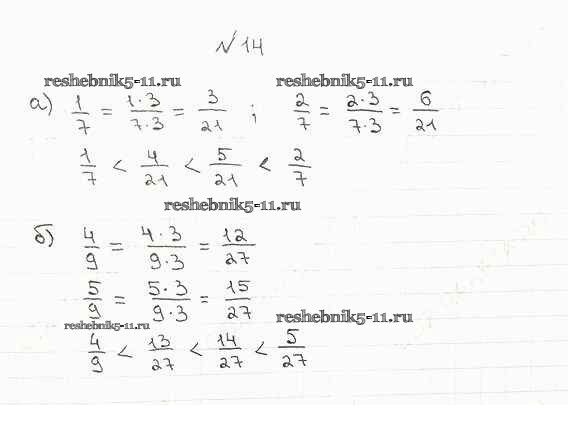 № 14
reshebnik5-11.ru reshebnik5-11.ru
а) 1/7 = 1·3/7·3 = 3/21 ; 2/7 = 2·3/7·3 = 6/21
1/7 < 4/21 < 5/21 < 2/7
reshebnik5-11.ru
б) 4/9 = 4·3/9·3 = 12/27
5/9 = 5·3/9·3 = 15/27
reshebnik5-11.ru reshebnik5-11.ru
4/9 < 13/27 < 14/27 < 5/27